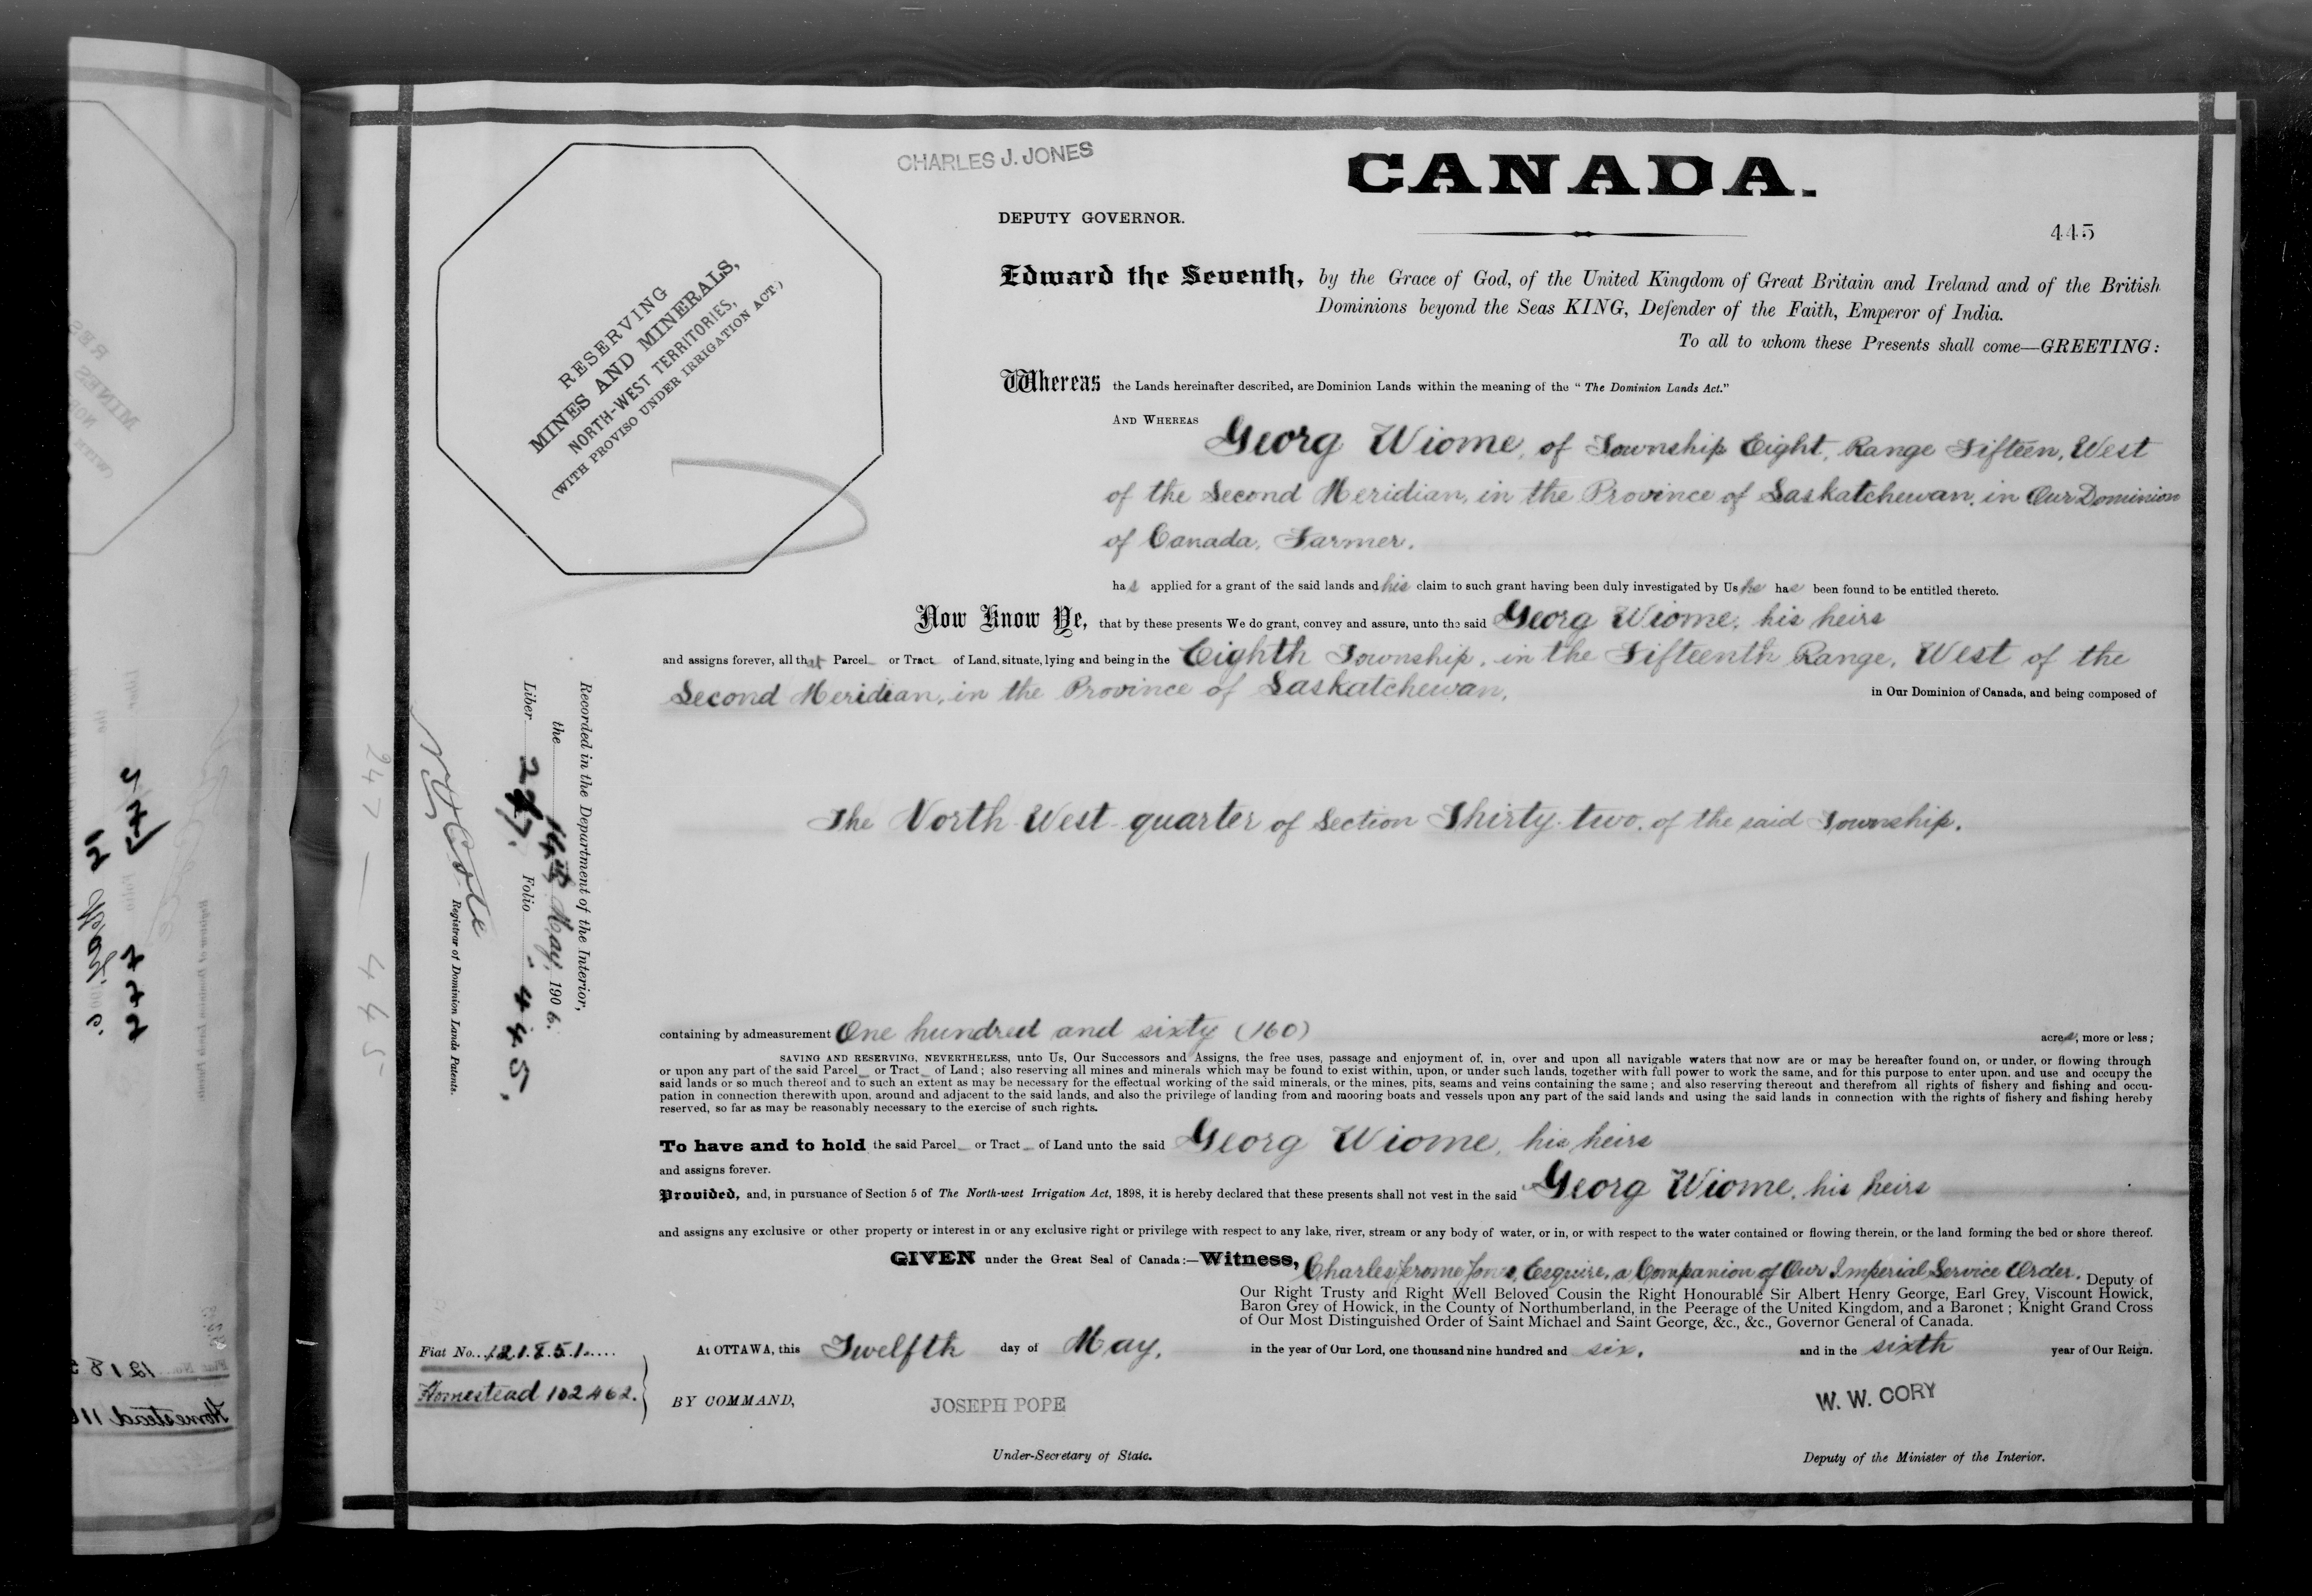 CHARLES J. JONES
CANADA.
DEPUTY GOVERNOR.
445
RESERVING
MINES AND MINERALS,
NORTH-WEST TERRITORIES,
(WITH PROVISO UNDER IRRIGATION ACT.)
Edward the Seventh, by the Grace of God, of the United Kingdom of Great Britain and Ireland and of the British
Dominions beyond the Seas KING, Defender of the Faith, Emperor of India.
To all to whom these Presents shall come—GREETING:
Whereas the Lands hereinafter described, are Dominion Lands within the meaning of the "The Dominion Lands Act."
AND WHEREAS Georg Wiome, of Township Eight, Range Fifteen, West
of the Second Meridian, in the Province of Saskatchewan, in Our Dominion
of Canada, Farmer.
has applied for a grant of the said lands and his claim to such grant having been duly investigated by Us he has been found to be entitled thereto.
Now Know Ye, that by these presents We do grant, convey and assure, unto the said Georg Wiome, his heirs
and assigns forever, all that Parcel or Tract of Land, situate, lying and being in the Eighth Township, in the Fifteenth Range, West of the
Second Meridian, in the Province of Saskatchewan, in Our Dominion of Canada, and being composed of
The North West quarter of Section Thirty-two, of the said Township.
containing by admeasurement One hundred and sixty (160) acres, more or less;
SAVING AND RESERVING, NEVERTHELESS, unto Us, Our Successors and Assigns, the free uses, passage and enjoyment of, in, over and upon all navigable waters that now are or may be hereafter found on, or under, or flowing through
or upon any part of the said Parcel or Tract of Land; also reserving all mines and minerals which may be found to exist within, upon, or under such lands, together with full power to work the same, and for this purpose to enter upon, and use and occupy the
said lands or so much thereof and to such an extent as may be necessary for the effectual working of the said minerals, or the mines, pits, seams and veins containing the same; and also reserving thereout and therefrom all rights of fishery and fishing and occu-
pation in connection therewith upon, around and adjacent to the said lands, and also the privilege of landing from and mooring boats and vessels upon any part of the said lands and using the said lands in connection with the rights of fishery and fishing hereby
reserved, so far as may be reasonably necessary to the exercise of such rights.
To have and to hold the said Parcel or Tract of Land unto the said Georg Wiome, his heirs
and assigns forever.
Provided, and, in pursuance of Section 5 of The North-west Irrigation Act, 1898, it is hereby declared that these presents shall not vest in the said Georg Wiome, his heirs
and assigns any exclusive or other property or interest in or any exclusive right or privilege with respect to any lake, river, stream or any body of water, or in, or with respect to the water contained or flowing therein, or the land forming the bed or shore thereof.
GIVEN under the Great Seal of Canada:—Witness, Charles Jerome Jones, Esquire, a Companion of Our Imperial Service Order. Deputy of
Our Right Trusty and Right Well Beloved Cousin the Right Honourable Sir Albert Henry George, Earl Grey, Viscount Howick,
Baron Grey of Howick, in the County of Northumberland, in the Peerage of the United Kingdom, and a Baronet; Knight Grand Cross
of Our Most Distinguished Order of Saint Michael and Saint George, &c., &c., Governor General of Canada.
At OTTAWA, this Twelfth day of May, in the year of Our Lord, one thousand nine hundred and six. and in the sixth year of Our Reign.
BY COMMAND,
JOSEPH POPE
Under-Secretary of State.
W. W. CORY
Deputy of the Minister of the Interior.
Fiat No. 121851
Homestead 102462.
Recorded in the Department of the Interior,
the 14th May, 1906.
Liber 247. Folio 445.
Registrar of Dominion Lands Patents.
247 — 445